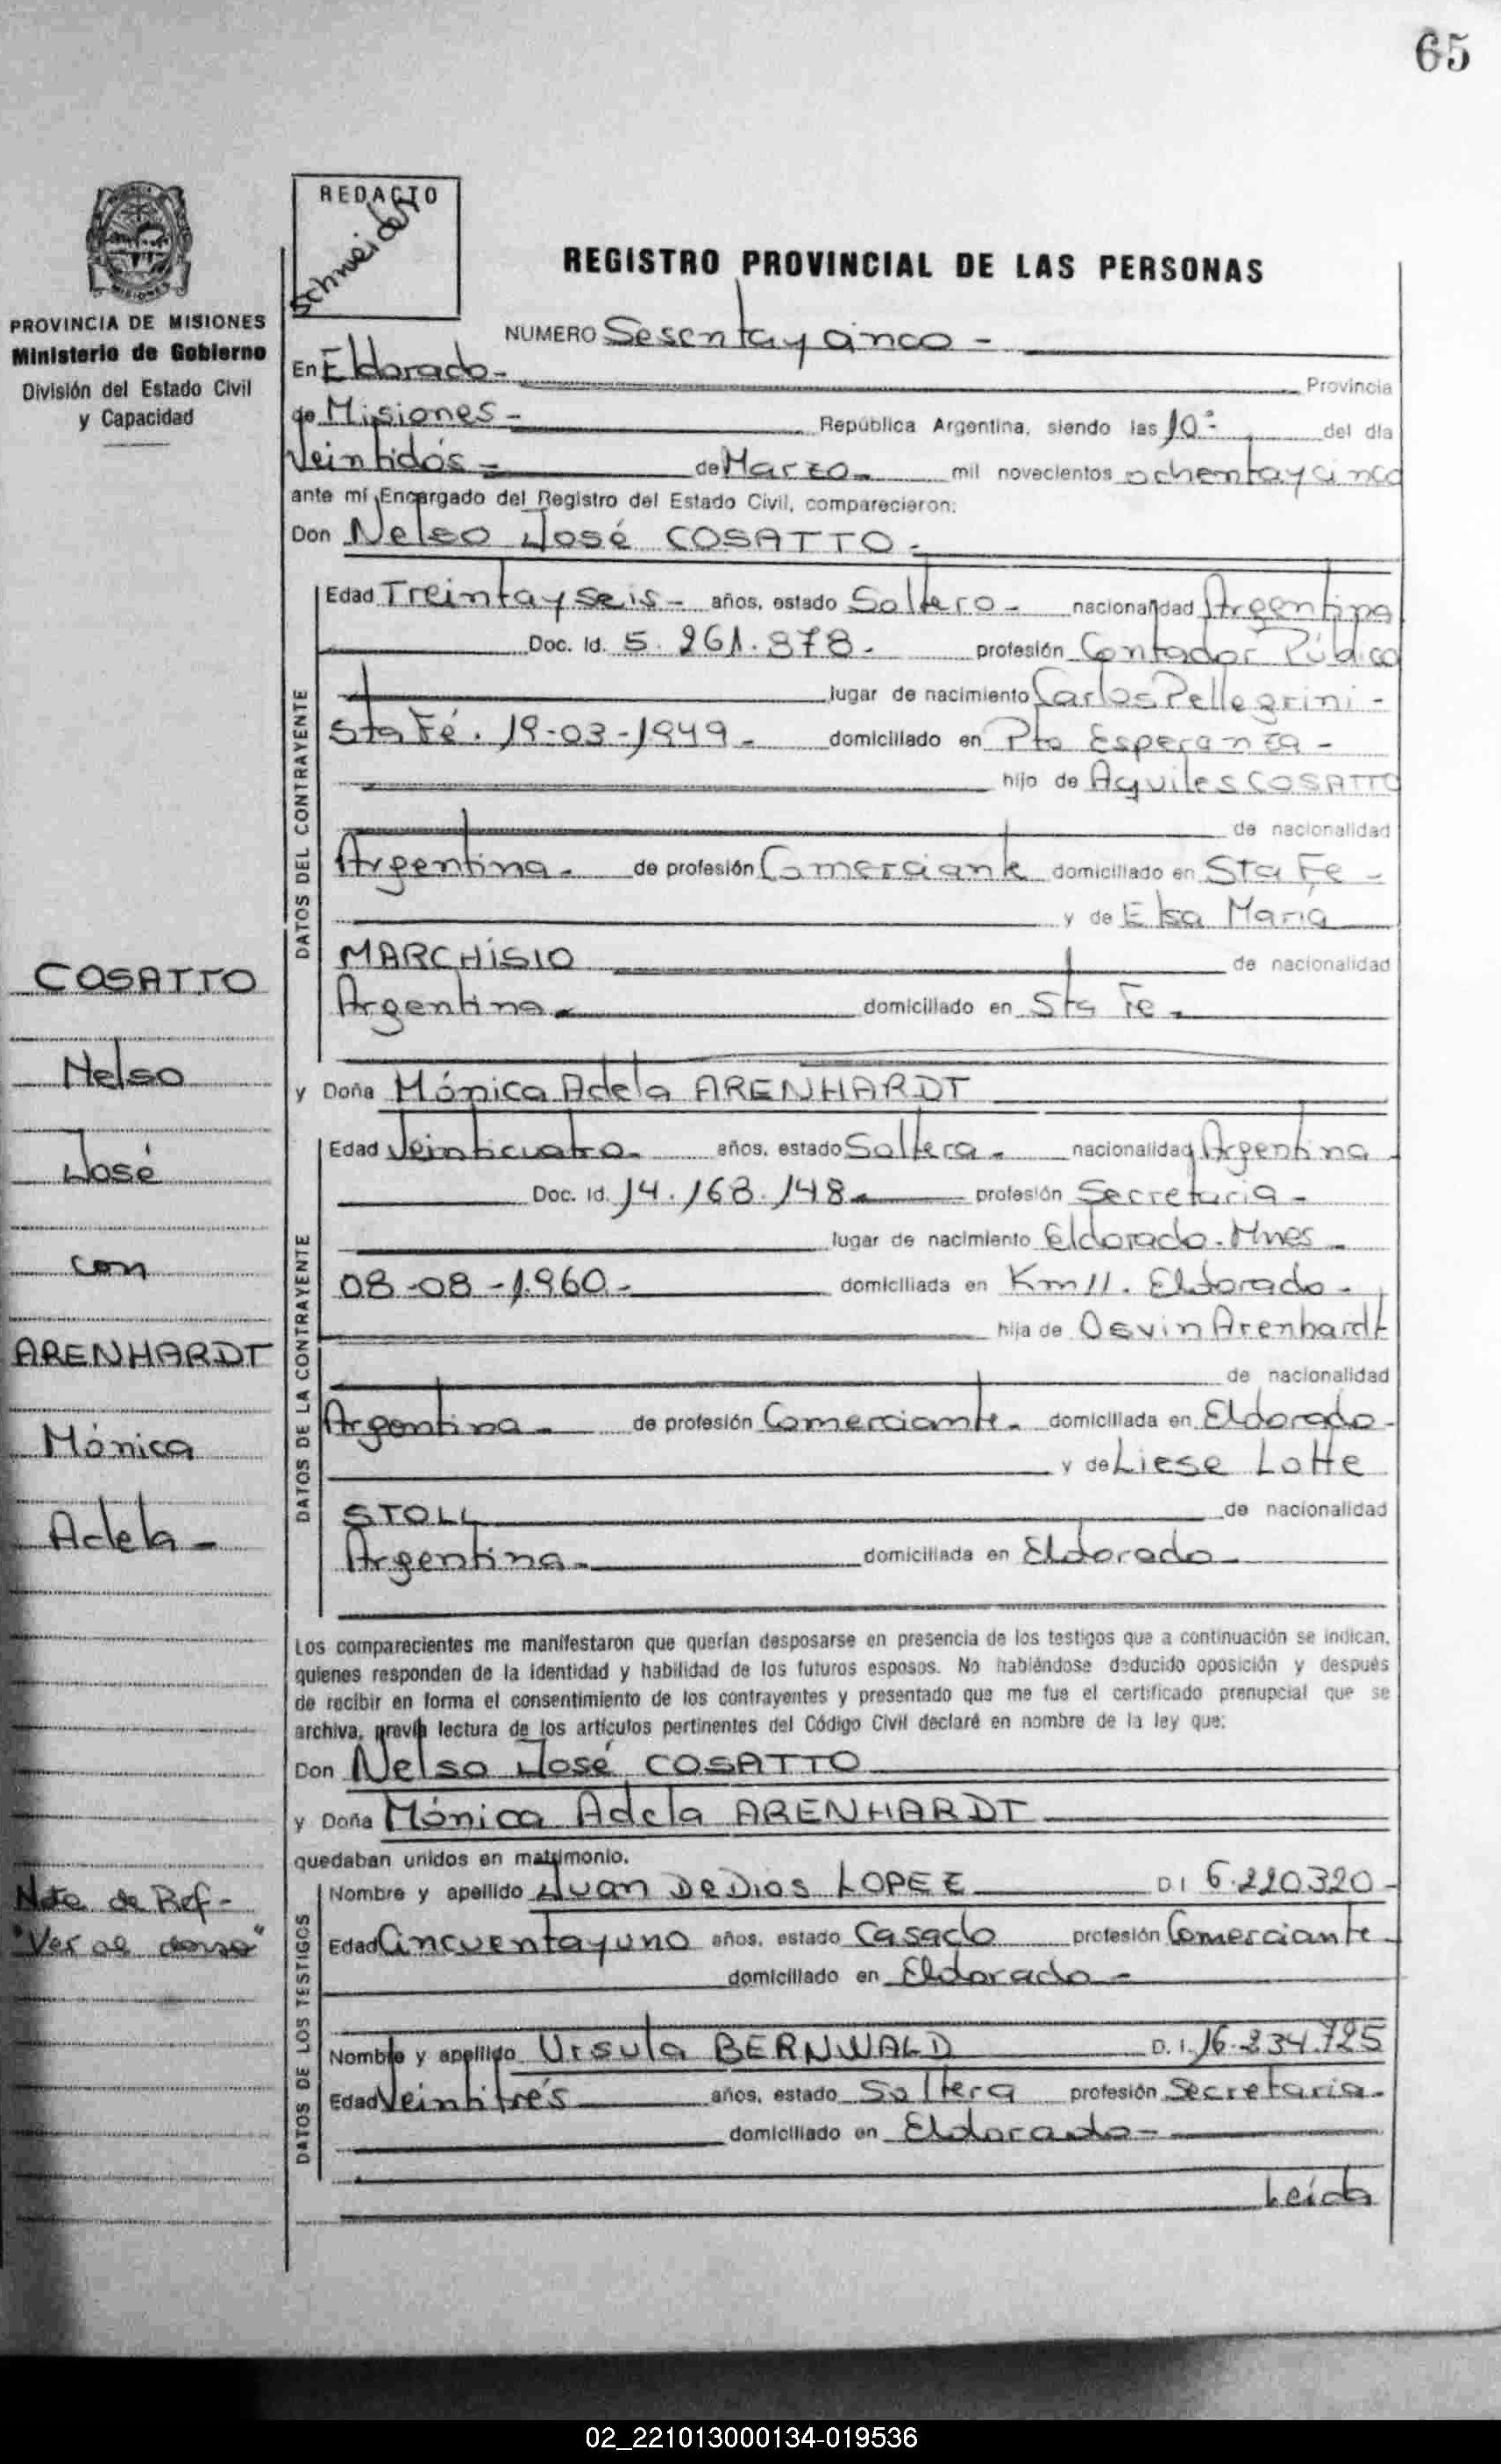 65
REDACTO
Schneider
REGISTRO PROVINCIAL DE LAS PERSONAS
PROVINCIA DE MISIONES
Ministerio de Gobierno
División del Estado Civil
y Capacidad
NUMERO Sesenta y cinco -
En Eldorado - Provincia
de Misiones - República Argentina, siendo las 10 - del día
Veintidós - de Marzo - mil novecientos ochenta y cinco
ante mí Encargado del Registro del Estado Civil, comparecieron:
Don Nelso José COSATTO -
DATOS DEL CONTRAYENTE
Edad Treinta y seis - años, estado Soltero - nacionalidad Argentina
Doc. Id. 5.261.878 - profesión Contador Público
lugar de nacimiento Carlos Pellegrini -
Sta Fé. 19-03-1949 - domiciliado en Pto Esperanza -
hijo de Aquiles COSATTO
de nacionalidad
Argentina - de profesión Comerciante domiciliado en Sta Fe -
y de Elsa María
MARCHISIO de nacionalidad
Argentina - domiciliado en Sta Fe -
y Doña Mónica Adela ARENHARDT
DATOS DE LA CONTRAYENTE
Edad Veinticuatro - años, estado Soltera - nacionalidad Argentina
Doc. Id. 14.168.148 - profesión Secretaria -
lugar de nacimiento Eldorado - Mnes -
08-08-1960 - domiciliada en Km 11. Eldorado -
hija de Osvin Arenhardt
de nacionalidad
Argentina - de profesión Comerciante - domiciliada en Eldorado -
y de Liese Lotte
STOLL de nacionalidad
Argentina - domiciliada en Eldorado -
Los comparecientes me manifestaron que querían desposarse en presencia de los testigos que a continuación se indican,
quienes responden de la identidad y habilidad de los futuros esposos. No habiéndose deducido oposición y después
de recibir en forma el consentimiento de los contrayentes y presentado que me fue el certificado prenupcial que se
archiva, previa lectura de los artículos pertinentes del Código Civil declaré en nombre de la ley que:
Don Nelso José COSATTO
y Doña Mónica Adela ARENHARDT
quedaban unidos en matrimonio.
DATOS DE LOS TESTIGOS
Nombre y apellido Juan De Dios LOPEZ D I 6.220320 -
Edad Cincuenta y uno años, estado Casado profesión Comerciante
domiciliado en Eldorado -
Nombre y apellido Ursula BERNWALD D. I. 16.234.725
Edad Veintitrés años, estado Soltera profesión Secretaria -
domiciliado en Eldorado -
Leída
COSATTO
Nelso
José
con
ARENHARDT
Mónica
Adela -
Nota de Ref -
"Ver al dorso"
02_221013000134-019536